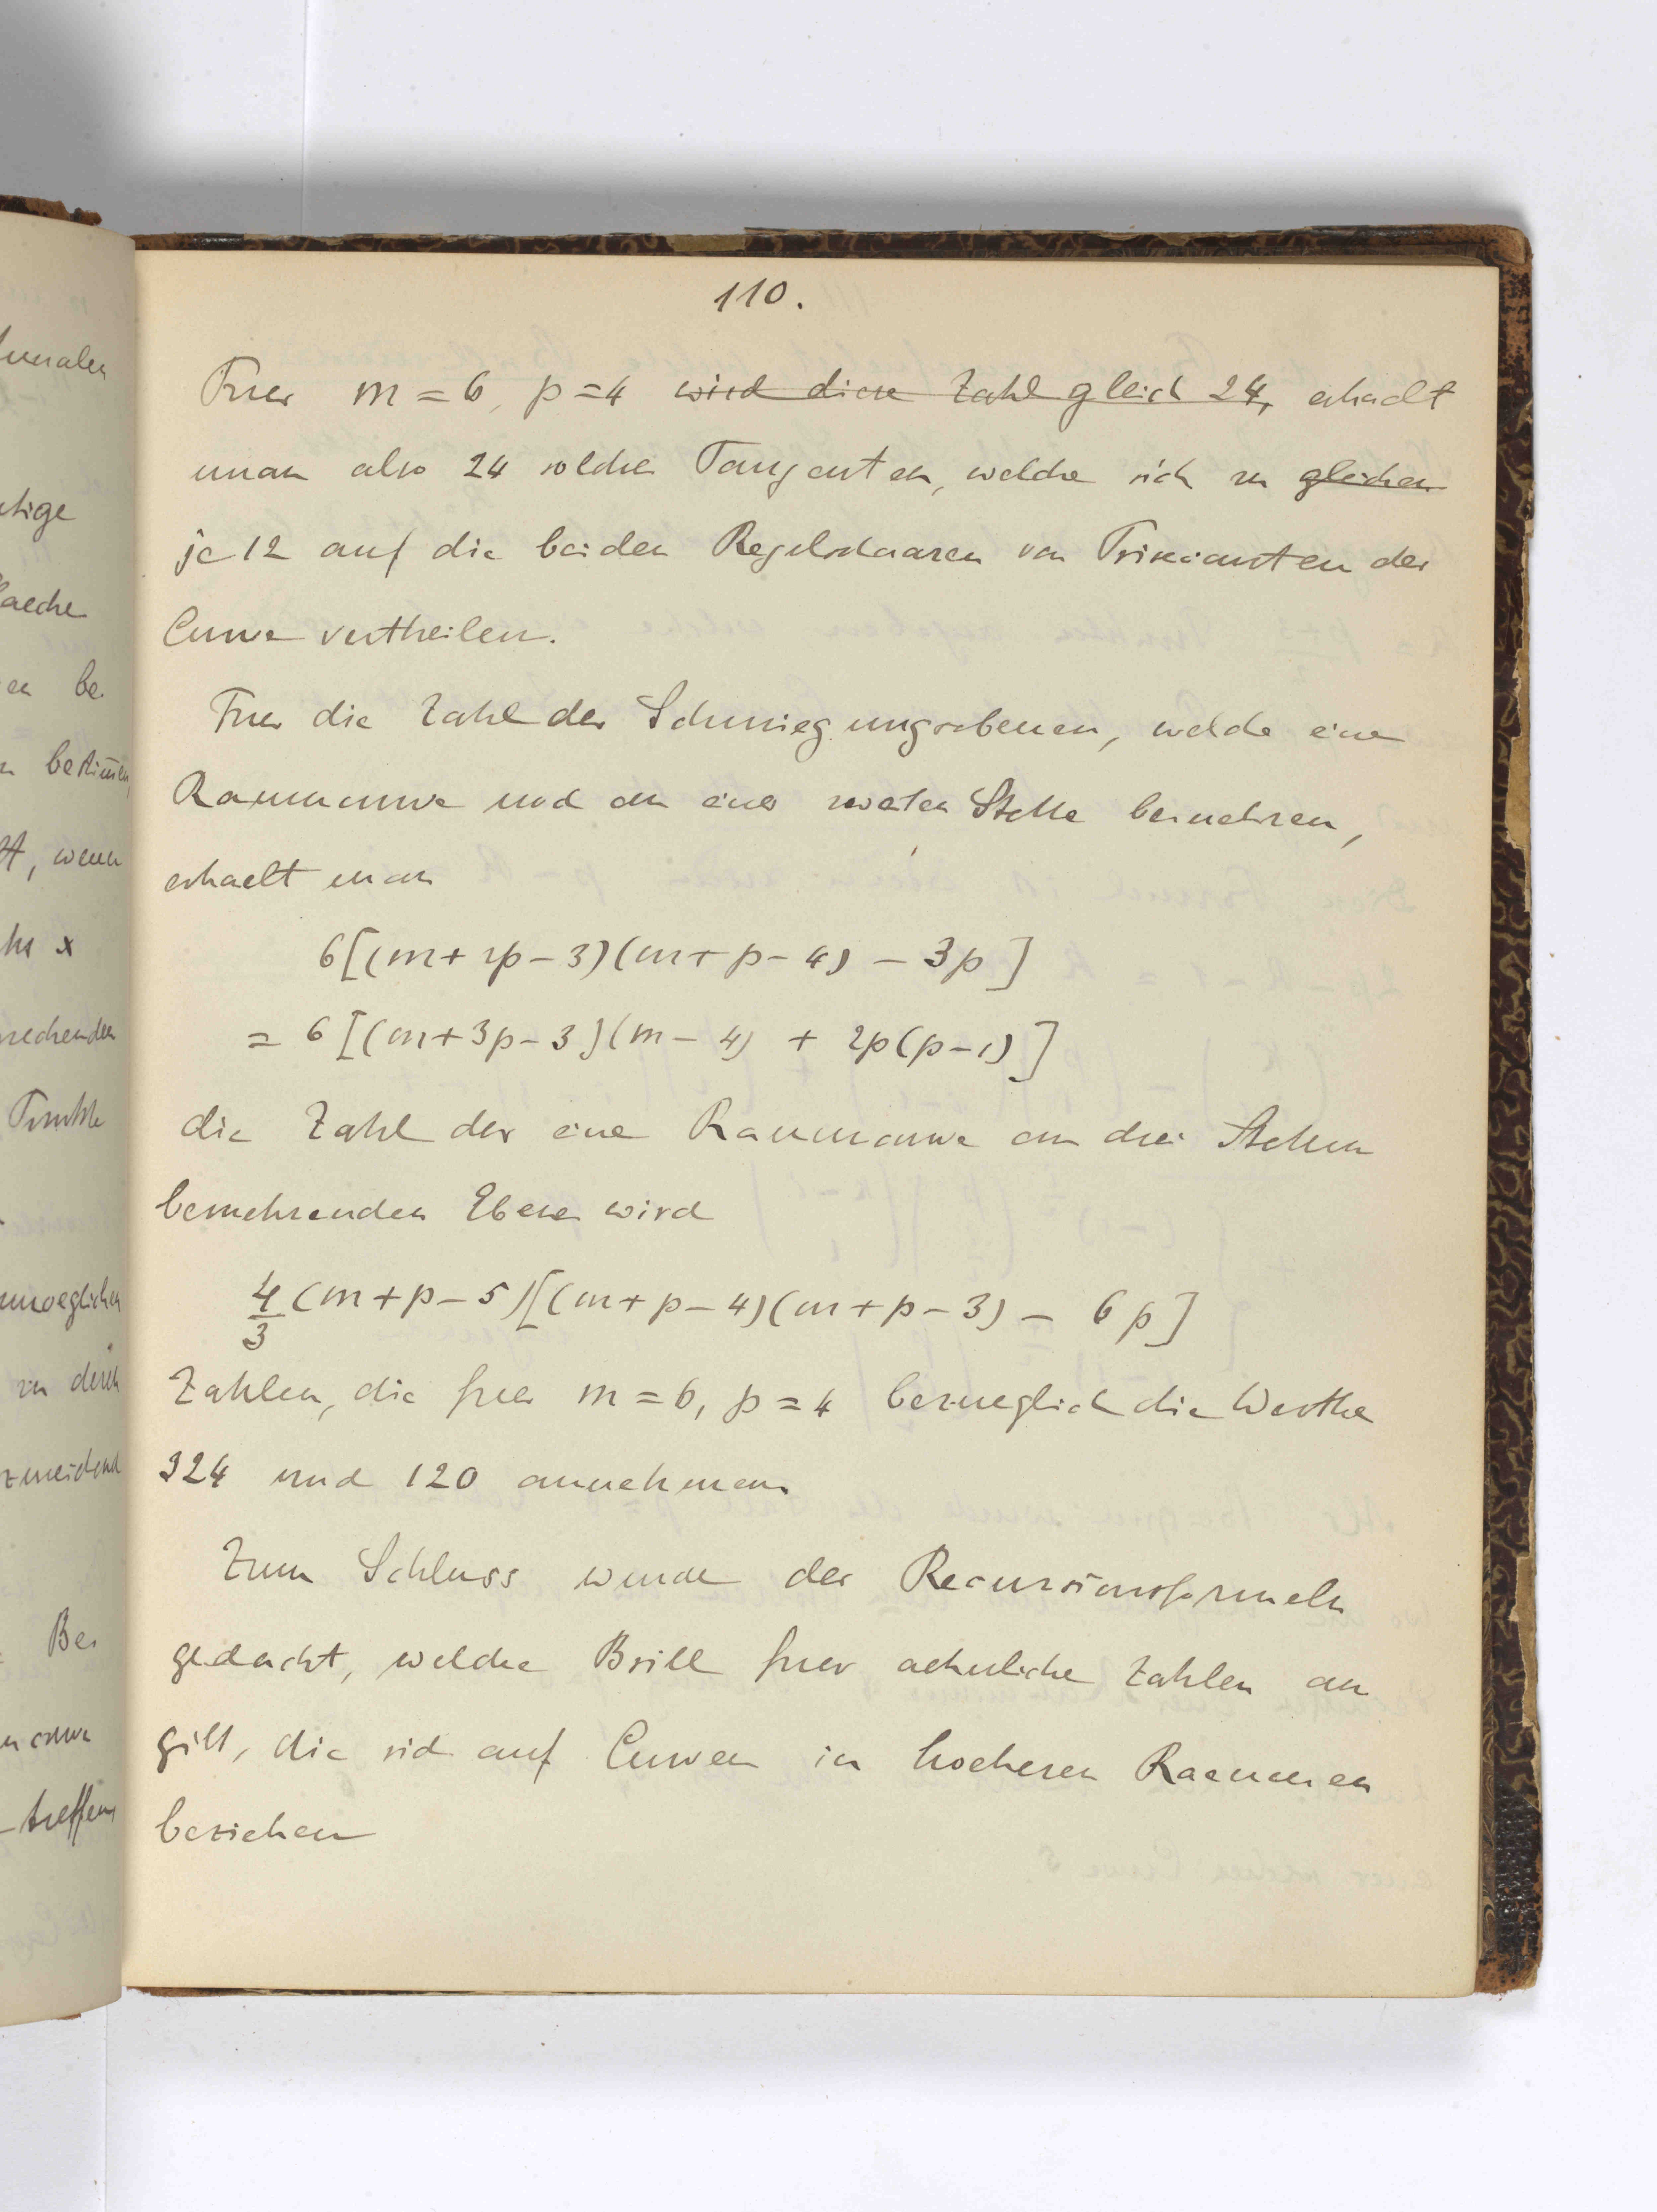 110.
Fuer m = 6, p = 4 wird diese Zahl gleich 24, erhaelt
man also 24 solcher Tangenten, welche sich zu gleichen
je 12 auf die beiden Regelschaaren von Trisecanten der
Curve vertheilen.
Fuer die Zahl der Schmiegungsebenen, welche eine
Raumcurve noch an einer zweiten Stelle beruehren,
erhaelt man
6[(m + 2p - 3)(m + p - 4) - 3p]
= 6[(m + 3p - 3)(m - 4) + 2p(p - 1)]
die Zahl der eine Raumcurve an drei Stellen
beruehrenden Ebenen wird
4/3 (m + p - 5)[(m + p - 4)(m + p - 3) - 6p]
Zahlen, die fuer m = 6, p = 4 bezueglich die Werthe
324 und 120 annehmen.
Zum Schluss wurde der Recursionsformeln
gedacht, welche Brill fuer aehnliche Zahlen an
gibt, die sich auf Curven in hoeheren Raeumen
beziehen
tige
aeche
en be.
bestim̄en,
wenn
x
rechenden
Punkte
moeglichen
durch
Bei
treffen